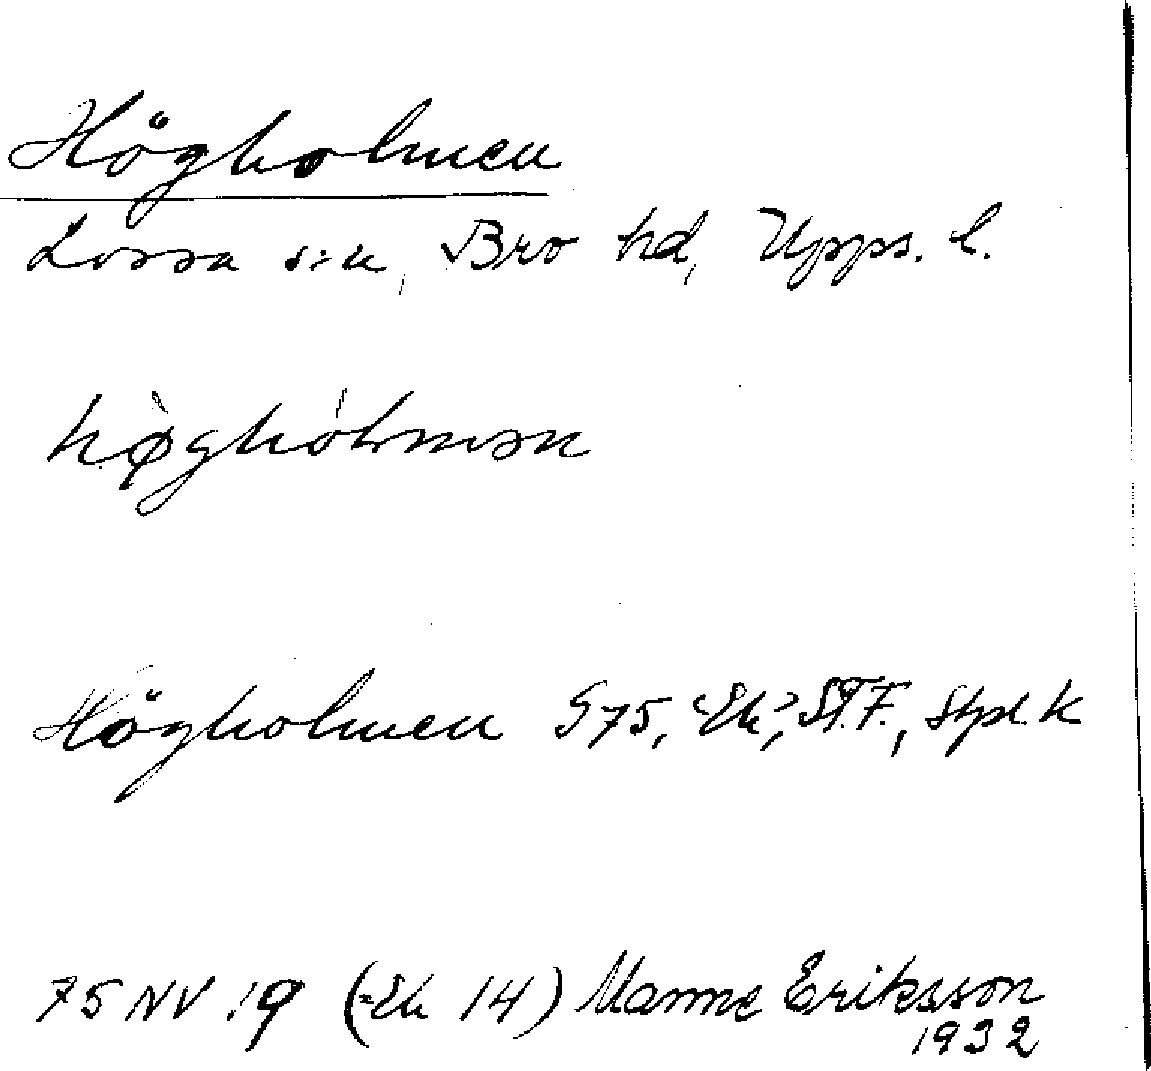 Högholmen
Lossa s:n, Bro hd, Upps. l.
Högholmen G75, Ek, STF.,
75 NV 19 (=Ek 14) Manne Eriksson
1932